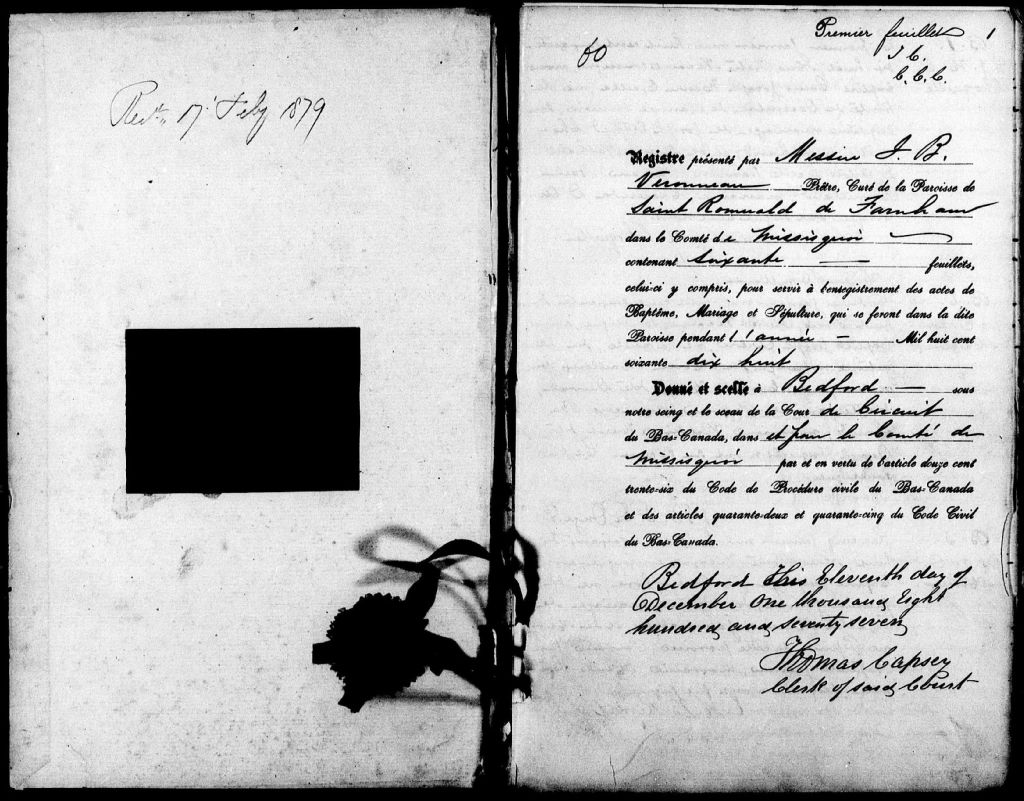 Recd., 17 Feby 1879
Premier feuillet 1
T C.
C. C. C.
60
Registre présenté par Messire J. B.
Veronneau Prêtre, Curé de la Paroisse de
Saint Romuald de Farnham
dans le Comté de Missisquoi
contenant soixante feuillets,
celui-ci y compris, pour servir à l'enregistrement des actes de
Baptême, Mariage et Sépulture, qui se feront dans la dite
Paroisse pendant l'année Mil huit cent
soixante dix huit
Donné et scellé à Bedford sous
notre seing et le sceau de la Cour de Circuit
du Bas-Canada, dans et pour le Comté de
Missisquoi par et en vertu de l'article douze cent
trente-six du Code de Procédure civile du Bas-Canada
et des articles quarante-deux et quarante-cinq du Code Civil
du Bas-Canada.
Bedford this Eleventh day of
December One thousand Eight
hundred and seventy seven
Thomas Capsey
Clerk of said Court